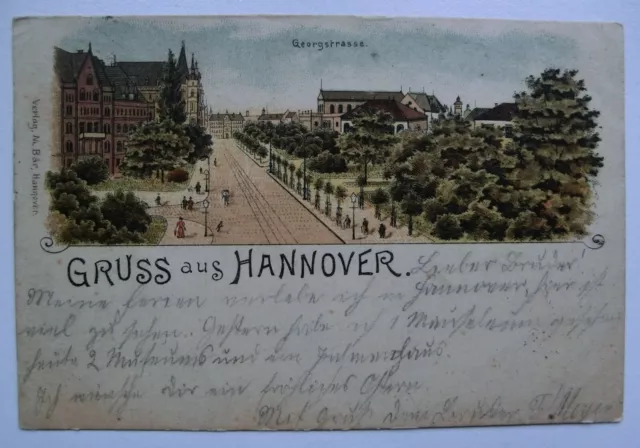 Georgstrasse.
Verlag N. Bär, Hannover.
GRUSS aus HANNOVER.
Lieber Bruder!
Meine Ferien verlebe ich in Hannover, hier ist
viel zu sehen. Gestern habe ich 1 Mausoleum gesehen
heute 2 Museums und ein Palmenhaus.
Ich wünsche dir ein fröhliches Ostern.
Mit Gruß Dein Bruder Meyer